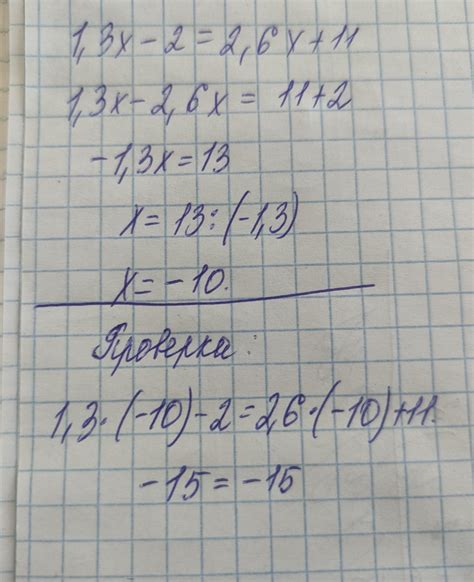 1,3x-2=2,6x+11
1,3x-2,6x= 11+2
-1,3x=13
x=13:(-1,3)
x=-10.
Проверка:
1,3·(-10)-2=2,6·(-10)+11.
-15=-15